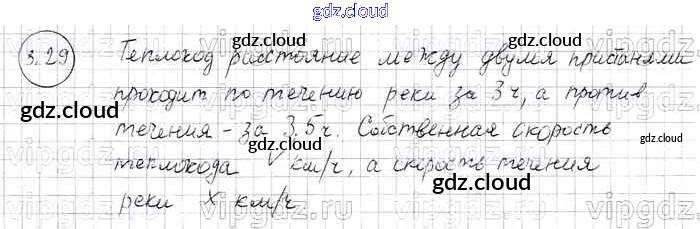 gdz.cloud
3.29 Теплоход расстояние между двумя пристанями
gdz.cloud
gdz.cloud
проходит по течению реки за 3 ч, а против
gdz.cloud
gdz.cloud
течения - за 3,5 ч. Собственная скорость
gdz.cloud
теплохода V км/ч, а скорость течения
gdz.cloud
реки х км/ч.
gdz.cloud
vipgdz.ru